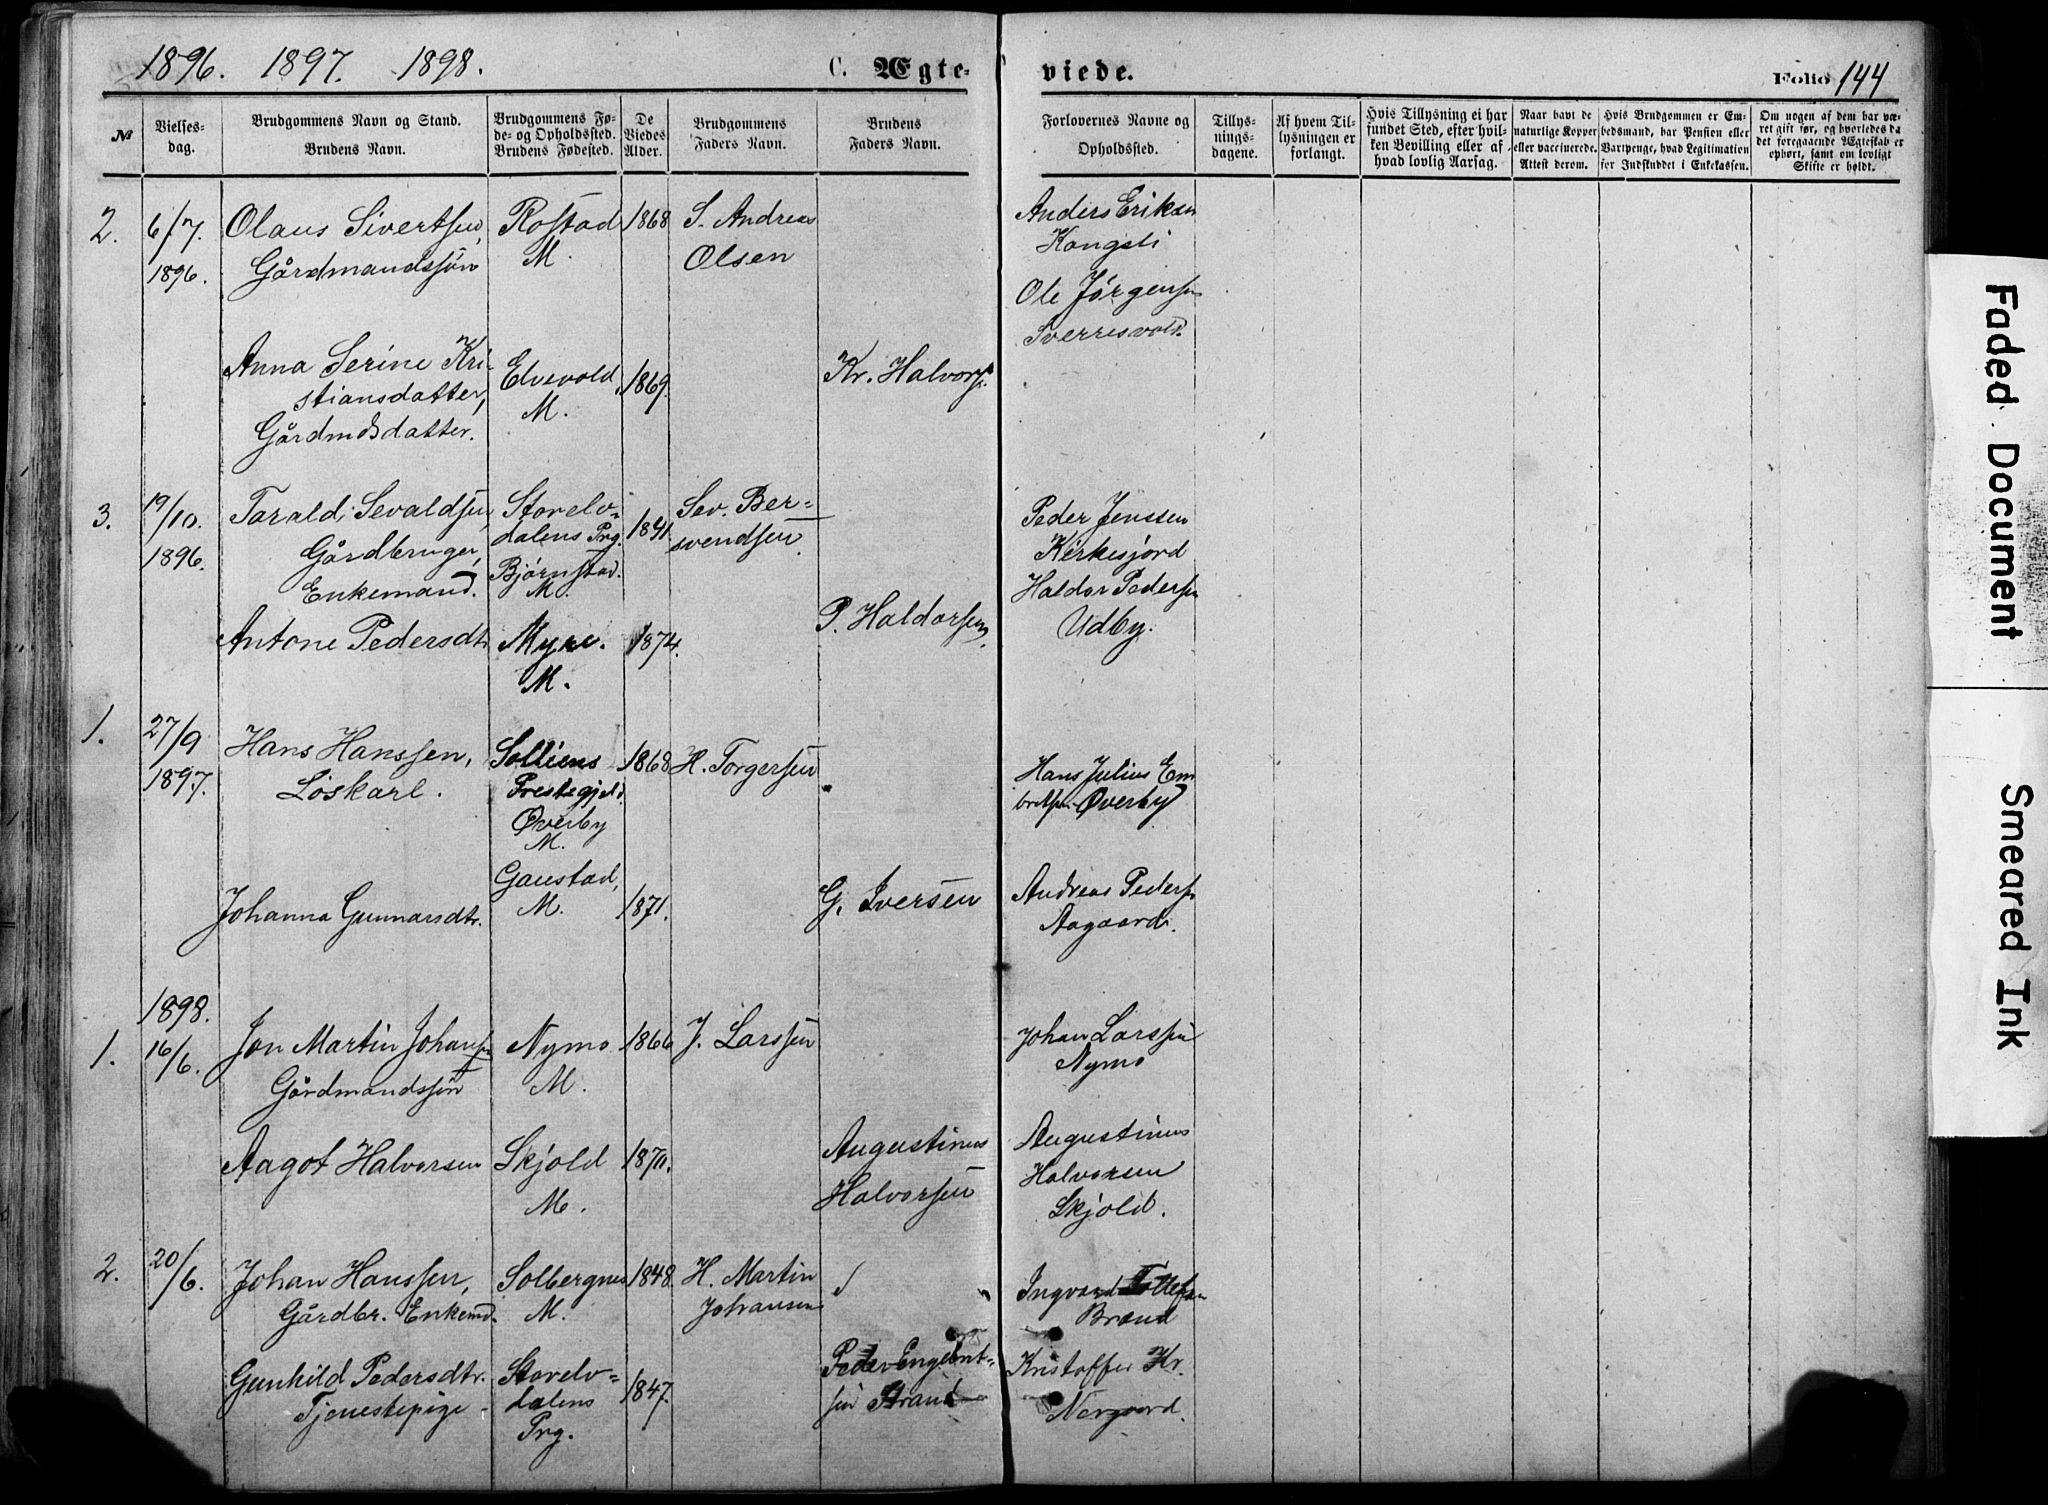 1896. 1897. 1898.
C. Ægteviede.
Folio 144
№
Vielsesdag.
Brudgommens Navn og Stand.
Brudens Navn.
Brudgommens Føde- og Opholdssted.
Brudens Fødested.
De Viedes Alder.
Brudgommens Faders Navn.
Brudens Faders Navn.
Forlovernes Navne og Opholdssted.
Tillysningsdagene.
Af hvem Tillysningen er forlangt.
Hvis Tillysning ei har fundet Sted, efter hvilken Bevilling eller af hvad lovlig Aarsag.
Naar havt de naturlige Kopper eller vaccinerede. Attest derom.
Hvis Brudgommen er Embedsmand, har Pension eller Vartpenge, hvad Legitimation for Indskuddet i Enkekassen.
Om nogen af dem har været gift før, og hvorledes da det foregaaende Ægteskab er ophørt, samt om lovligt Skifte er holdt.
2. 6/7. Olaus Sivertsen, Rostad 1868 S. Andreas Anders Eriksen
1896. Gårdmandssön M. Olsen Kongsli
Ole Jørgensen
Sverresvold.
Anna Serine Kri- Elvevold, 1869. Kr. Halvors.
stiansdatter, M.
Gårdmdsdatter.
3. 19/10. Torald Sevaldsen, Storelv- 1841. Sev. Ber- Peder Jenssen
1896. Gårdbruger, dalens Prg. svendsen Kirkesjord
Enkemand. Bjørnstad. M. Haldor Pedersen
Antone Pedersdt. Myre. 1874. P. Haldorsen Udby.
M.
1. 27/9 Hans Hanssen, Solliens 1868 H. Torgersen Hans Julius Em
1897. Löskarl. Prestegjeld. bretsen Øverby
Øverby
M.
Gaustad,
Johanna Gunnarsdtr. M. 1871. G. Iversen Andreas Peders.
Aagaard.
1898.
1. 16/6. Jon Martin Johansen Nymo 1866 J. Larssen Johan Larssen
Gårdmandssön M. Nymo
Aagot Halvorsen Skjold 1870. Augustinus Augustinus
M. Halvorsen Halvorsen
Skjold.
2. 20/6. Johan Hanssen, Solbergnes 1848. H. Martin Ingvard Tollefsen
Gårdbr. Enkemd. M. Johansen Brænd
Gunhild Pedersdtr. Storelv- 1847. Peder Engebret- Kristoffer Kr.
Tjenestepige dalens sen Strand Nergaard.
Prg.
Faded Document
Smeared Ink